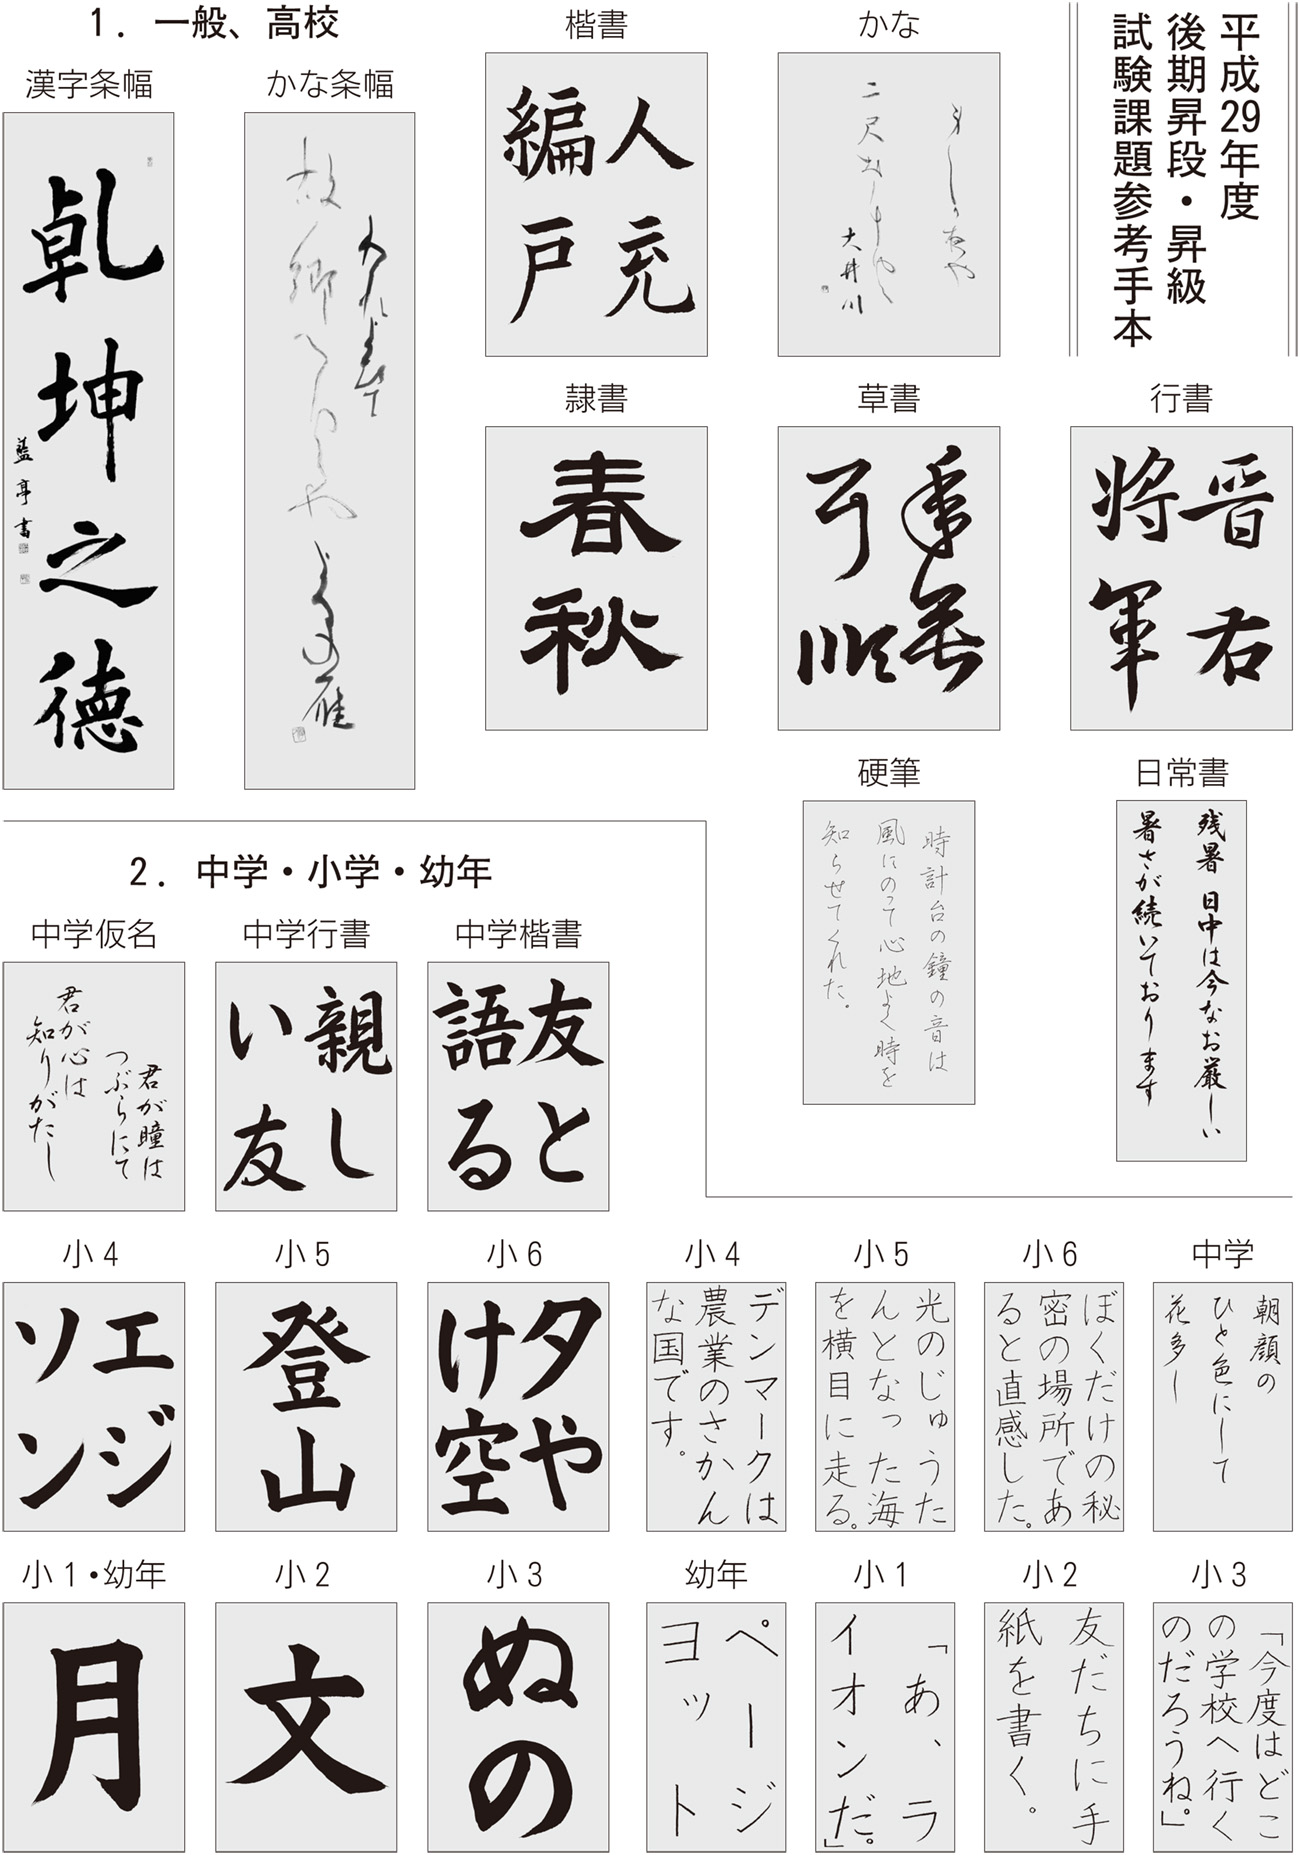 平成29年度
後期昇段・昇級
試験課題参考手本
1．一般、高校
漢字条幅
乾坤之徳
藍亭書
かな条幅
故郷
雁
楷書
人充
編戸
かな
大井川
行書
晋右
将軍
草書
隷書
春秋
日常書
残暑 日中は今なお厳しい
暑さが続いております
硬筆
時計台の鐘の音は
風にのって心地よく時を
知らせてくれた。
2．中学・小学・幼年
中学楷書
友と
語る
中学行書
親し
い友
中学仮名
君が瞳は
つぶらにて
君が心は
知りがたし
小6
夕や
け空
小5
登山
小4
エジ
ソン
中学
朝顔の
ひと色にして
花多し
小6
ぼくだけの秘
密の場所であ
ると直感した。
小5
光のじゅうた
んとなった海
を横目に走る。
小4
デンマークは
農業のさかん
な国です。
小3
ぬの
小2
文
小1・幼年
月
小3
「今度はどこ
の学校へ行く
のだろうね。」
小2
友だちに手
紙を書く。
小1
「あ、ラ
イオンだ。」
幼年
ページ
ヨット